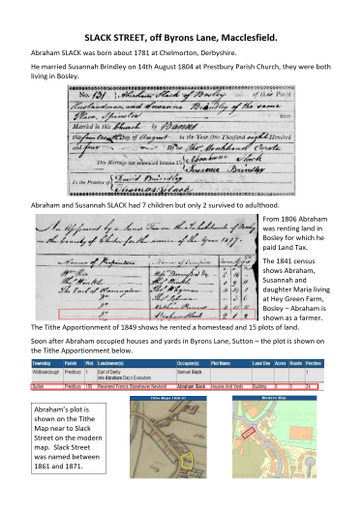 SLACK STREET, off Byrons Lane, Macclesfield.
Abraham SLACK was born about 1781 at Chelmorton, Derbyshire.
He married Susannah Brindley on 14th August 1804 at Prestbury Parish Church, they were both
living in Bosley.
No. 131 Abraham Slack of Bosley of this Parish
Husbandman and Susanna Brindley of the same
Place, Spinster
Married in this Church by Banns
this fourteenth Day of August in the Year One Thousand eight Hundred
and four
This Marriage was solemnized between Us
Abraham Slack
Susanna Brindley
In the Presence of David Brindley
Thomas Slack
Abraham and Susannah SLACK had 7 children but only 2 survived to adulthood.
From 1806 Abraham
was renting land in
Bosley for which he
paid Land Tax.
The 1841 census
shows Abraham,
Susannah and
daughter Maria living
at Hey Green Farm,
Bosley – Abraham is
shown as a farmer.
An Assessment by a Land Tax on the Inhabitants of
the County of Chester for the
Names of Proprietors Names of
The Earl of Harrington
Abraham Slack
The Tithe Apportionment of 1849 shows he rented a homestead and 15 plots of land.
Soon after Abraham occupied houses and yards in Byrons Lane, Sutton – the plot is shown on
the Tithe Apportionment below.
Township Parish Plot Landowner(s) Occupier(s) Plot Name Land Use Acres Roods Perches
Prestbury 1 Earl of Derby Samuel Slack
late Abraham Day's Executors
Sutton Prestbury Abraham Slack Houses And Yards Building 0 0
Abraham's plot is
shown on the Tithe
Map near to Slack
Street on the modern
map. Slack Street
was named between
1861 and 1871.
Modern Map